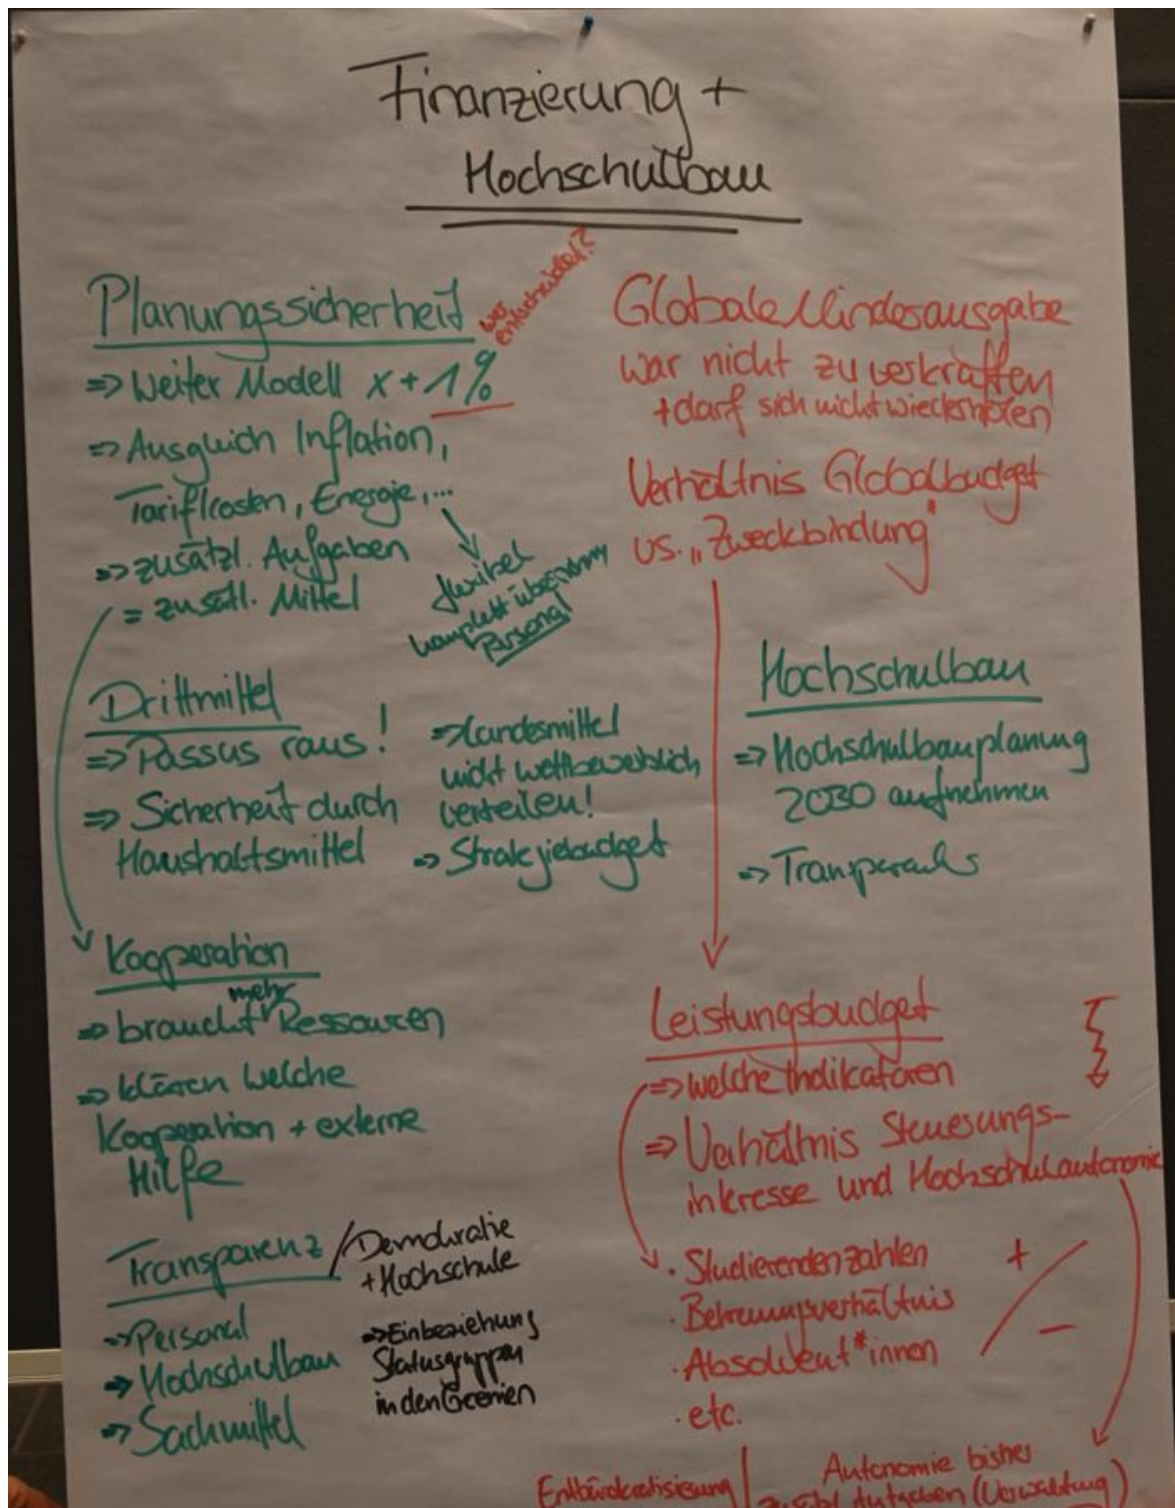 Finanzierung +
Hochschulbau
Planungssicherheit
wer
entscheidet?
=> Weiter Modell x + 1%
=> Ausgleich Inflation,
Tarifkosten, Energie,...
=> zusätzl. Aufgaben
= zusätl. Mittel
flexibel
komplett
Personal
Drittmittel
=> Passus raus!
=> Sicherheit durch
Haushaltsmittel
=> Landesmittel
nicht wettbewerblich
verteilen!
=> Stratgiebudget
Kooperation
mehr
=> braucht Ressourcen
=> klären welche
Kooperation + externe
Hilfe
Transparenz / Demokratie
+ Hochschule
=> Personal
=> Hochschulbau
=> Sachmittel
=> Einbeziehung
Statusgruppen
in den Gremien
Globale Minderausgabe
war nicht zu verkraften
+ darf sich nicht wiederholen
Verhältnis Globalbudget
vs. „Zweckbindung"
Hochschulbau
=> Hochschulbauplanung
2030 aufnehmen
=> Tranparenz
Leistungsbudget
=> welche Indikatoren
=> Verhältnis Steuerungs-
interesse und Hochschulautonomie
· Studierendenzahlen
· Betreuungsverhältnis
· Absolvent*innen
· etc.
+
-
Entbürokratisierung
Autonomie bisher
zusätzl. Aufgaben (Verwaltung)